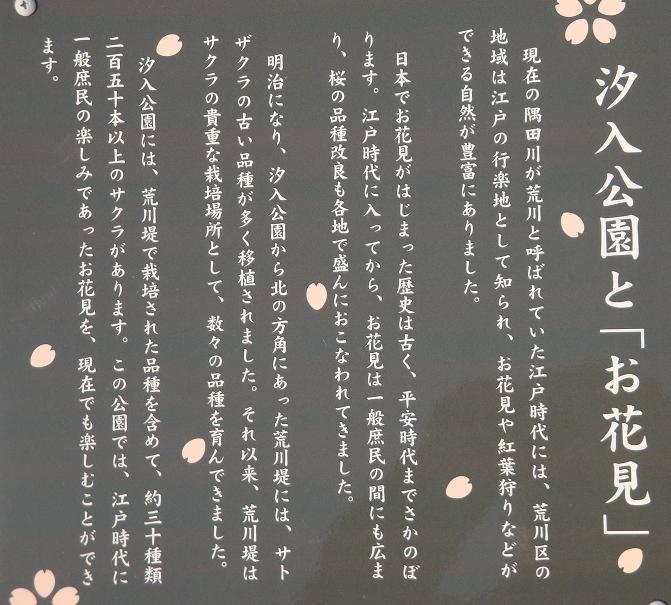 汐入公園と「お花見」
現在の隅田川が荒川と呼ばれていた江戸時代には、荒川区の
地域は江戸の行楽地として知られ、お花見や紅葉狩りなどが
できる自然が豊富にありました。
日本でお花見がはじまった歴史は古く、平安時代までさかのぼ
ります。江戸時代に入ってから、お花見は一般庶民の間にも広ま
り、桜の品種改良も各地で盛んにおこなわれてきました。
明治になり、汐入公園から北の方角にあった荒川堤には、サト
ザクラの古い品種が多く移植されました。それ以来、荒川堤は
サクラの貴重な栽培場所として、数々の品種を育んできました。
汐入公園には、荒川堤で栽培された品種を含めて、約三十種類
二百五十本以上のサクラがあります。この公園では、江戸時代に
一般庶民の楽しみであったお花見を、現在でも楽しむことができ
ます。